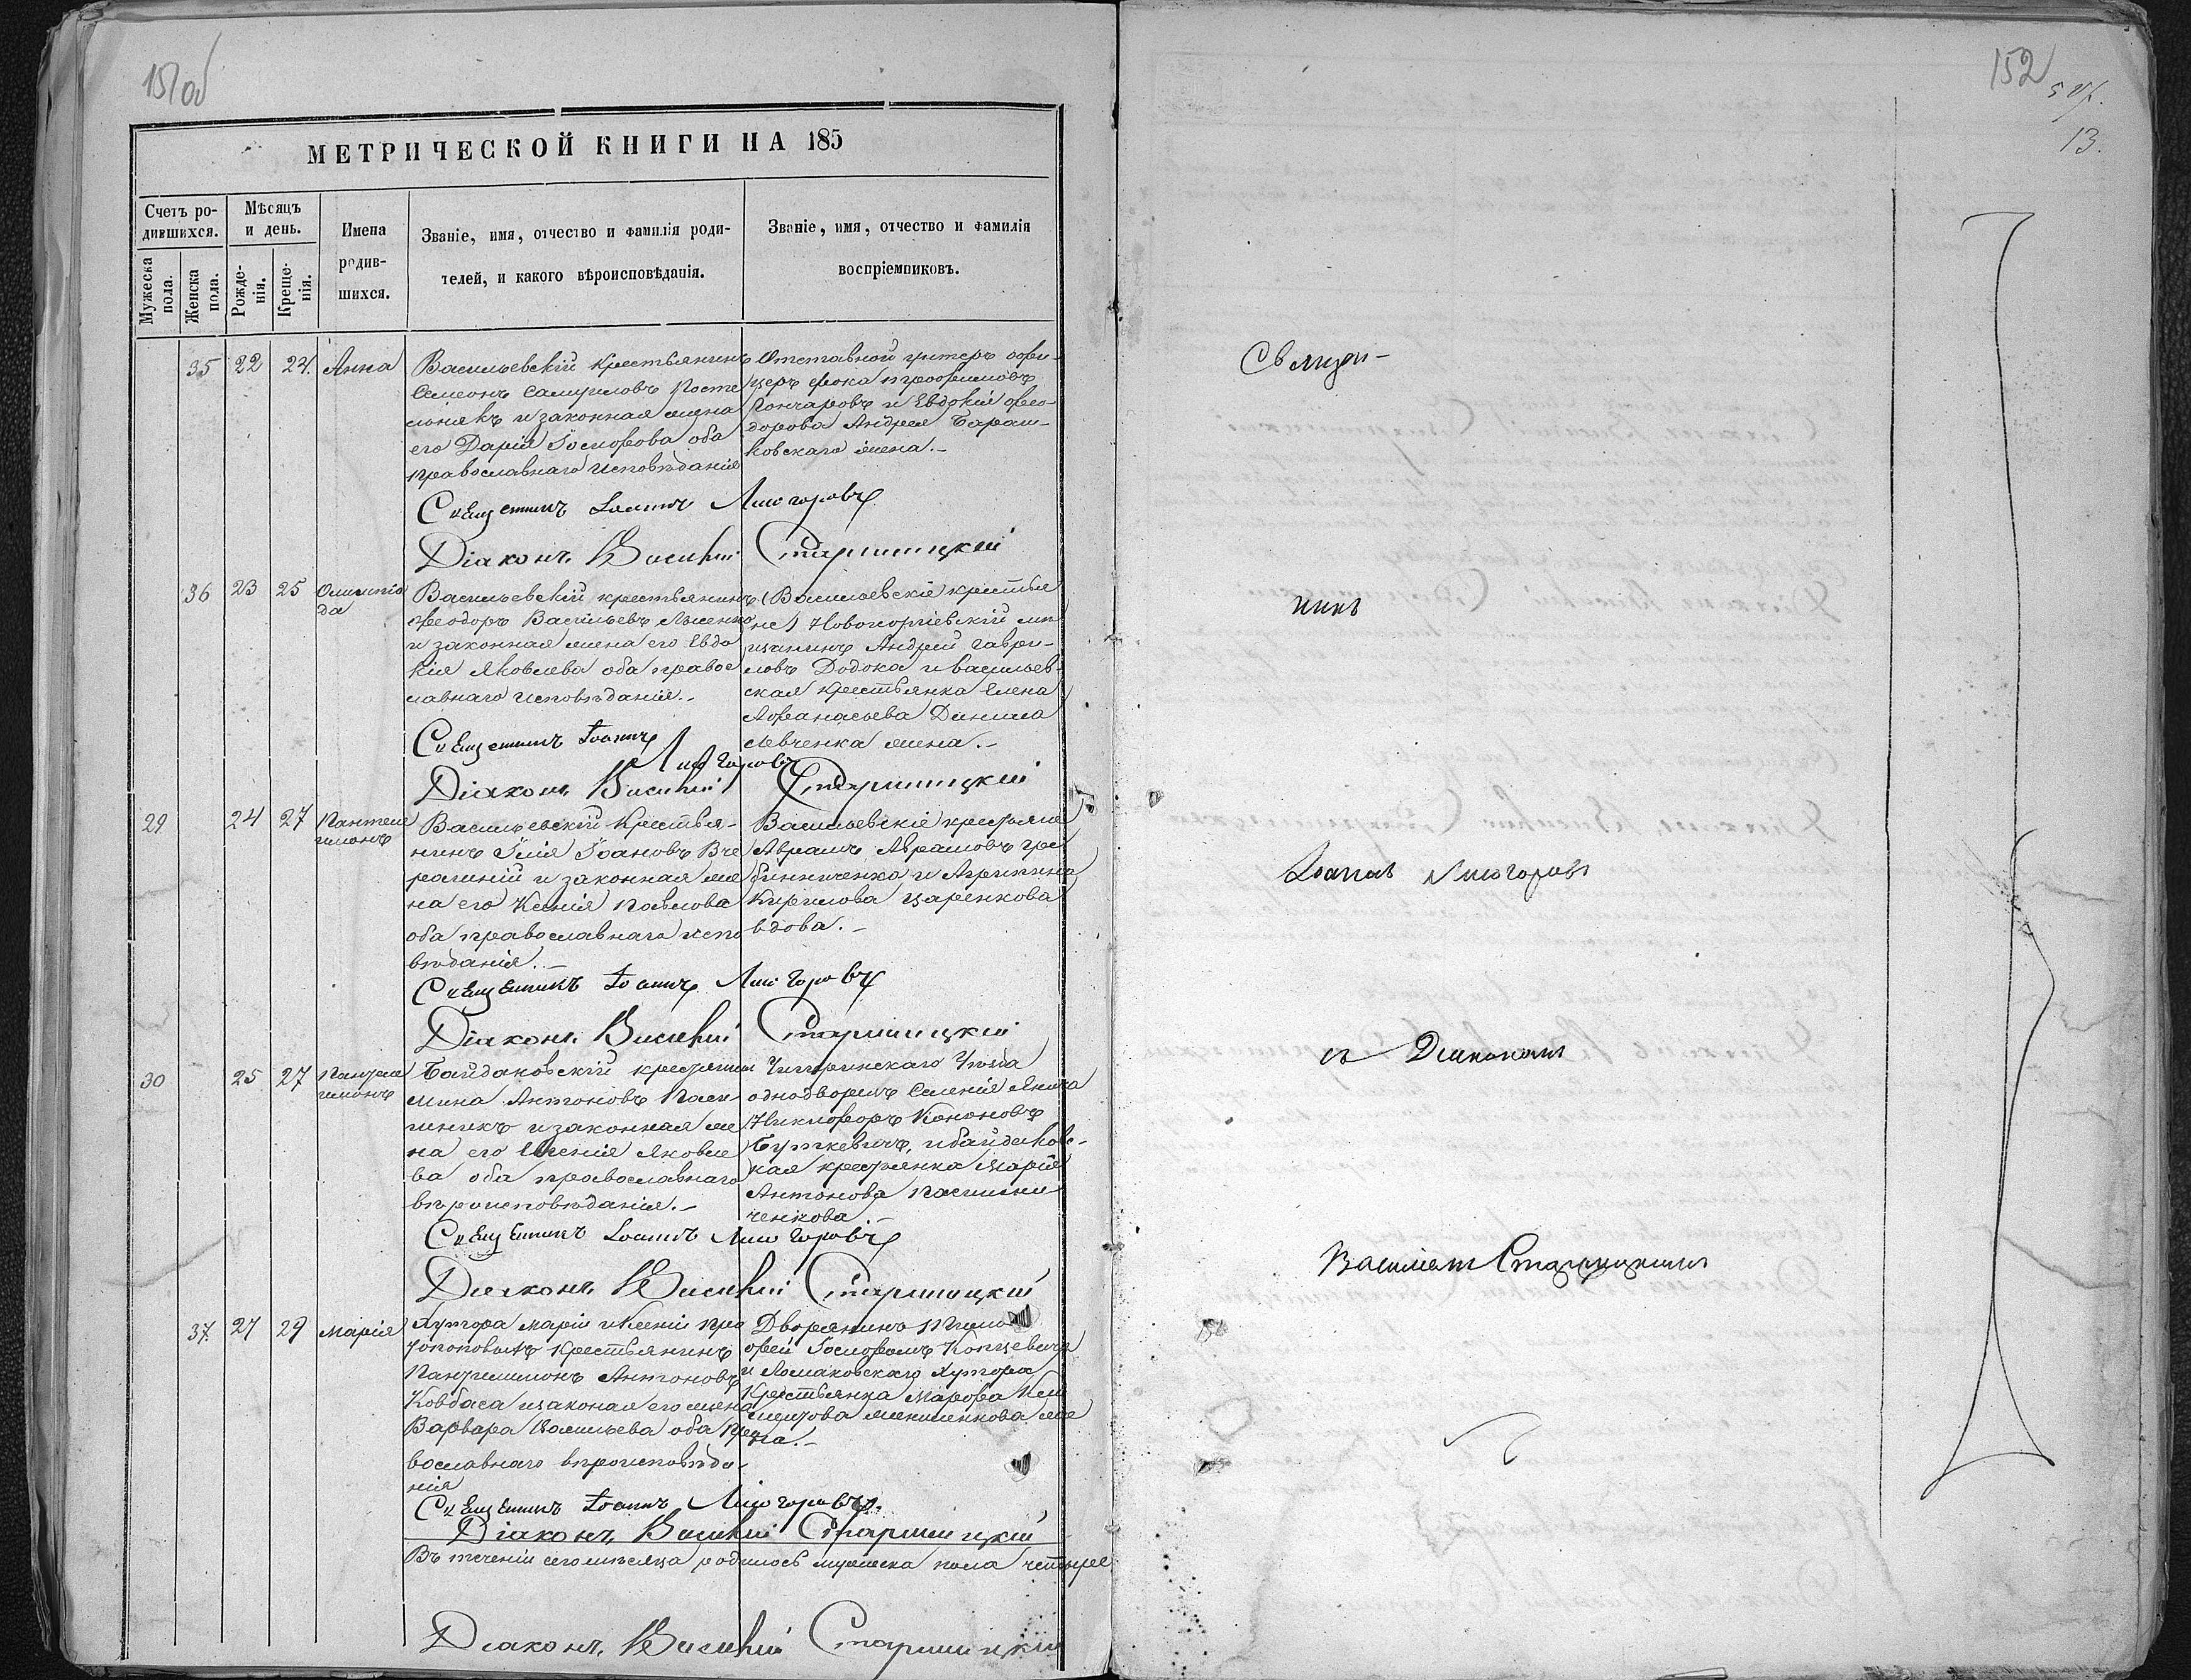 151об
МЕТРИЧЕСКОЙ КНИГИ НА 185
Счетъ ро-
дившихся.
Мѣсяцъ
и день.
Мужеска
пола.
Женска
пола.
Рожде-
нія.
Креще-
нія.
Имена
родив-
шихся.
Званіе, имя, отчество и фамилія роди-
телей, и какого вѣроисповѣданія.
Званіе, имя, отчество и фамилія
воспріемниковъ.
35 22 24. Анна
Васильевскій крестьянинъ
Симеонъ Самуиловъ Посте
льнякъ и законная жена
его Дарія Іосифова оба
православнаго исповѣданія
Отставной унтеръ офи-
церъ Фока
Гончаровъ и Евдокія Фео-
дорова Андрея Бараш-
ковскаго жена.-
Священникъ Іоаннъ Лисогоровъ
Діаконъ Василій Старицкій
36 23 25 Олимпіа
да
Васильевскій крестьянинъ
Феодоръ Васильевъ Лысенко
и законная жена его Евдо
кія Яковлева оба правос
лавнаго исповѣданія.-
(Васильевскіе крестья
не) Новогоргіевскій мѣ
щанинъ Андрей Гаври-
ловъ Додока и васильев-
ская крестьянка Елена
Афанасьева Данила
Левченка жена.-
Священникъ Іоаннъ
Лисогоровъ
Діаконъ Василій Старицкій
29 24 27 Пантеле
имонъ
Васильевскій крестья-
нинъ Илія Іоановъ Вче
рашній и законная же
на его Ксенія Павлова
оба православнаго испо
вѣданія.-
Васильевскіе крестьяне
Авраамъ Авраамовъ Гре
бинниченко и Агрипина
Кирилова Царенкова
вдова.-
Священникъ Іоаннъ Лисогоровъ
Діаконъ Василій Старицкій
30 25 27 Пантеле
имонъ
Байдаковскій крестянин
Мина Антоновъ Паси
шникъ и законная же
на его Евгенія Яковле
ва оба православнаго
вѣроисповѣданія.-
Чигиринскаго Уѣзда
однодворецъ Селенія Янича
Никифоръ Кононовъ
Буткевичъ, и байдаковс-
кая крестянка Марія
Антонова Пасишни
ченкова.-
Священникъ Іоаннъ Лисогоровъ
Діаконъ Василій Старицкій
37. 27 29 Марія
Хутора Маріи и Ксеніи Про
топоповыхъ крестьянинъ
Пантелимонъ Антоновъ
Ковбаса и законая его жена
Варвара Васильева оба пра
вославнаго вѣроисповѣда-
нія
Дворянинъ Тимо
фей Іосифовъ Концевичъ
и Ломаковскаго Хутора
крестьянка Марфа Кли
ментова же
на.-
Священникъ Іоаннъ Лисогоровъ.
Діаконъ Василій Старицкій
Въ теченіи сего мѣсяца родилось мужеска пола четыре
Діаконъ Василій Старицкій
152
13.
Священ-
никъ
Іоанъ Лисогоровъ
съ Діакономъ
Василіемъ Старицкимъ